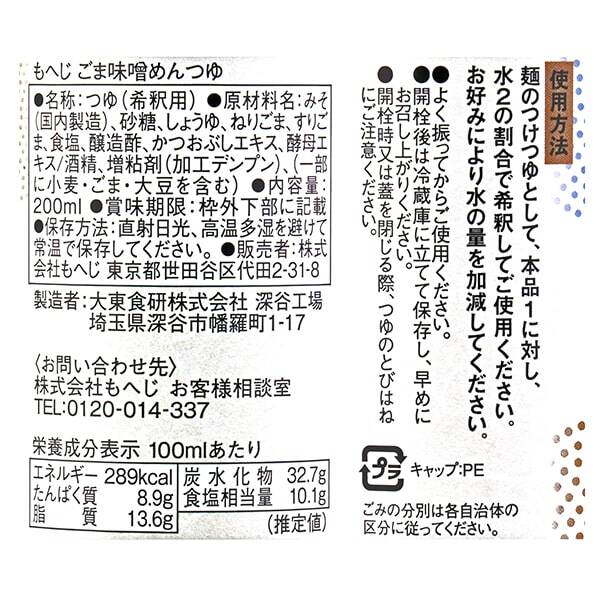 もへじ ごま味噌めんつゆ
●名称：つゆ（希釈用）●原材料名：みそ
（国内製造）、砂糖、しょうゆ、ねりごま、すりご
ま、食塩、醸造酢、かつおぶしエキス、酵母エ
キス/酒精、増粘剤（加工デンプン）、（一部
に小麦・ごま・大豆を含む）●内容量：
200ml ●賞味期限：枠外下部に記載
●保存方法：直射日光、高温多湿を避けて
常温で保存してください。●販売者：株式
会社もへじ 東京都世田谷区代田2-31-8
製造者：大東食研株式会社 深谷工場
埼玉県深谷市幡羅町1-17
〈お問い合わせ先〉
株式会社もへじ お客様相談室
TEL:0120-014-337
栄養成分表示 100mlあたり
エネルギー 289kcal
たんぱく質 8.9g
脂質 13.6g
炭水化物 32.7g
食塩相当量 10.1g
（推定値）
使用方法
麺のつけつゆとして、本品1に対し、
水2の割合で希釈してご使用ください。
お好みにより水の量を加減してください。
●よく振ってからご使用ください。
●開栓後は冷蔵庫に立てて保存し、早めに
お召し上がりください。
●開栓時又は蓋を閉じる際、つゆのとびはね
にご注意ください。
プラ キャップ:PE
ごみの分別は各自治体の
区分に従ってください。